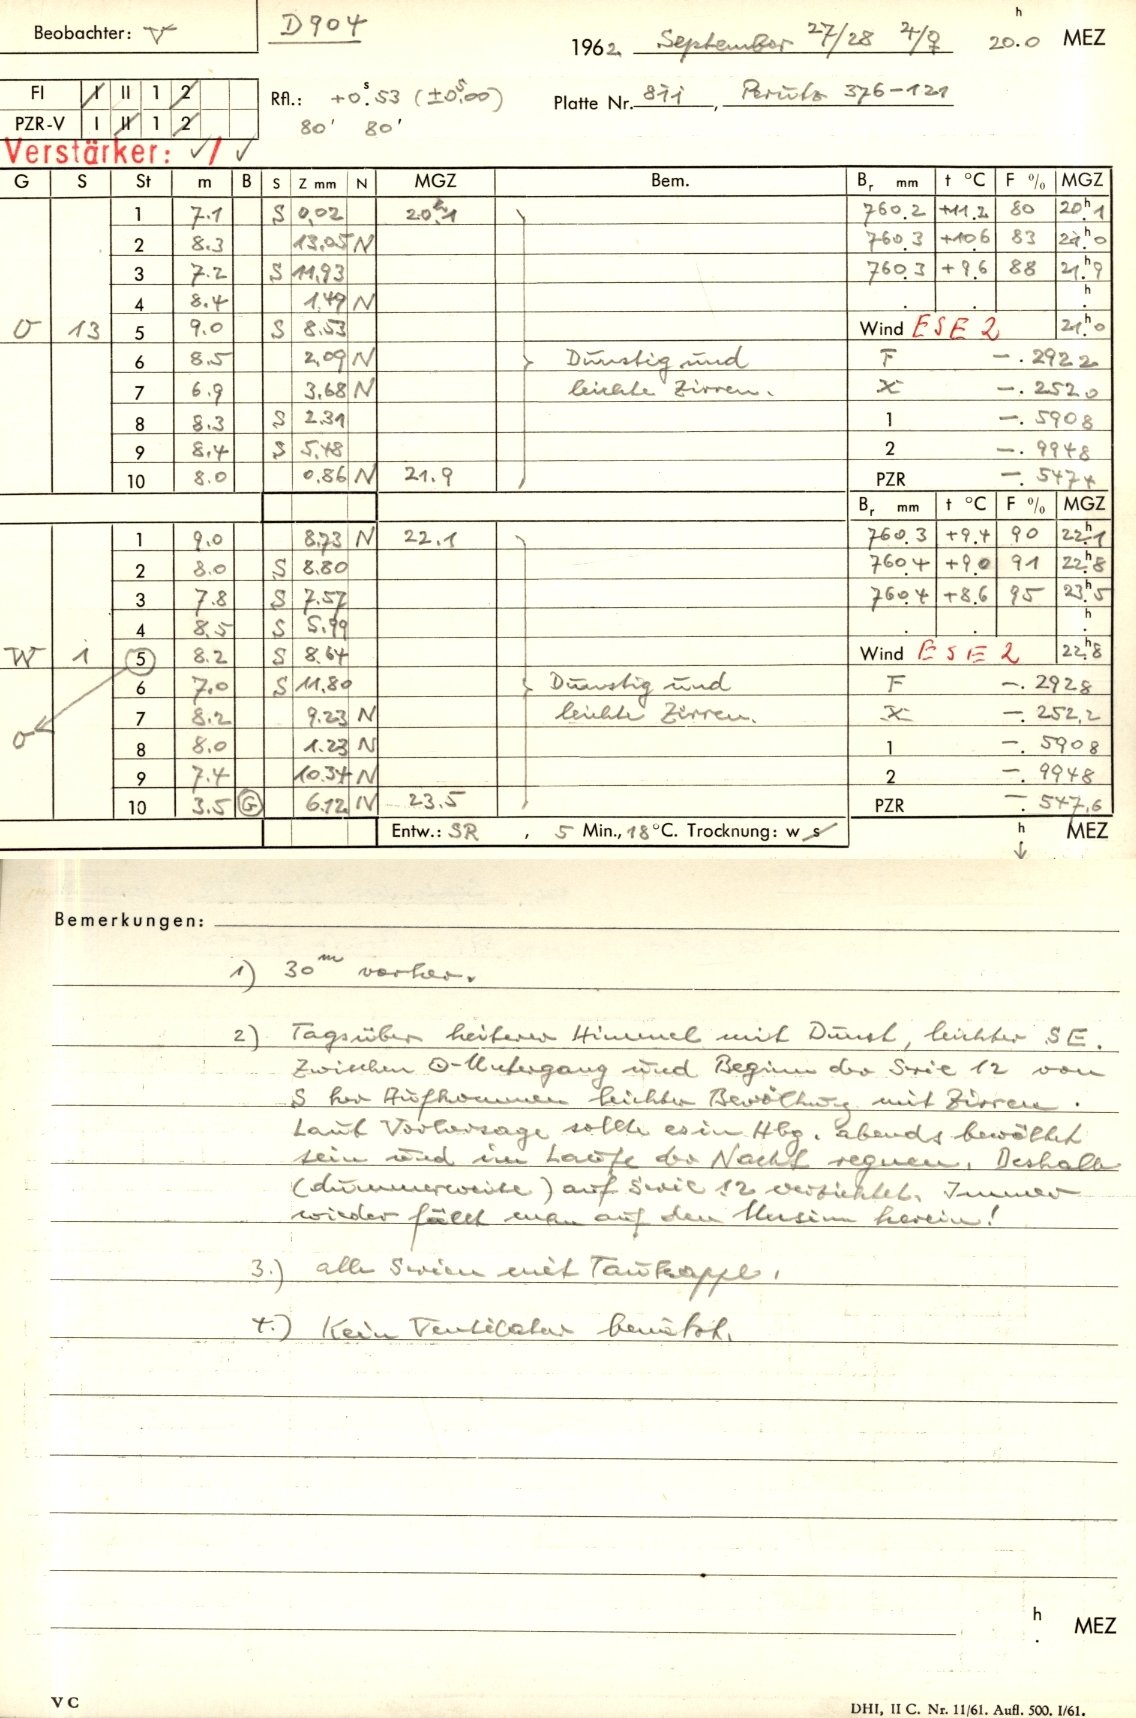 Beobachter:
D904
1962 September 27/28 ♃/♀ 20.0 h MEZ
FI I II 1 2
PZR-V I II 1 2
Rfl.: +0.53 s (±0.00 s)
80' 80'
Platte Nr. 811, Perutz 376-121
Verstärker: ✓/✓
G S St m B S Z mm N MGZ Bem. Br mm t °C F % MGZ
1 7.1 S 0,02 20h.1 760.2 +11.2 80 20h.1
2 8.3 13,05 N 760.3 +10.6 83 21h.0
3 7.2 S 11,93 760.3 +9.6 88 21h.9
4 8.4 1,49 N . . h.
O 13 5 9.0 S 8.53 Wind ESE 2 21h.0
6 8.5 2,09 N Dunstig und F -.2922
7 6.9 3,68 N leichte Zirren. X -.2520
8 8.3 S 2.31 1 -.5908
9 8.4 S 5,48 2 -.9948
10 8.0 0,86 N 21.9 PZR -.5474
Br mm t °C F % MGZ
1 9.0 8,73 N 22.1 760.3 +9.4 90 22h.1
2 8.0 S 8.80 760.4 +9.0 91 22h.8
3 7.8 S 7.57 760.4 +8.6 95 23h.5
4 8.5 S 5,99 . . h.
W 1 5 8.2 S 8.64 Wind ESE 2 22h.8
6 7.0 S 11,80 Dunstig und F -.2928
O 7 8.2 9.23 N leichte Zirren. X -.2522
8 8.0 1.23 N 1 -.5908
9 7.4 10.34 N 2 -.9948
10 3.5 G 6.12 N 23.5 PZR -.5476
Entw.: SR , 5 Min., 18 °C. Trocknung: w s h MEZ
Bemerkungen:
1) 30m vorher.
2) Tagsüber heiterer Himmel mit Dunst, leichter SE.
Zwischen ⊙-Untergang und Beginn der Serie 12 von
S her Aufkommen leichter Bewölkung mit Zirren.
Laut Vorhersage sollte es in Hbg. abends bewölkt
sein und im Laufe der Nacht regnen. Deshalb
(dummerweise) auf Serie 12 verzichtet. Immer
wieder fällt man auf den Unsinn herein!
3.) alle Serien mit Taukappe.
4.) Kein Ventilator benützt.
h. MEZ
VC
DHI, II C. Nr. 11/61. Aufl. 500. I/61.